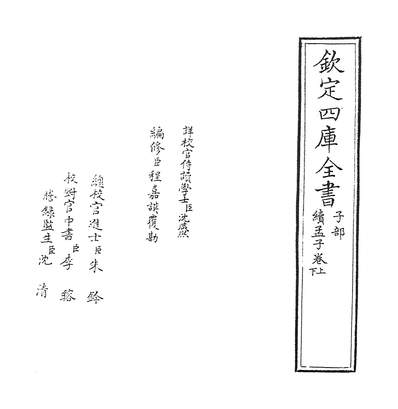 欽定四庫全書
子部
續孟子卷上下
詳校官侍讀學士臣沈咸熙
編修臣程嘉謨覆勘
總校官進士臣朱鈐
校對官中書臣李榕
謄錄監生臣沈清